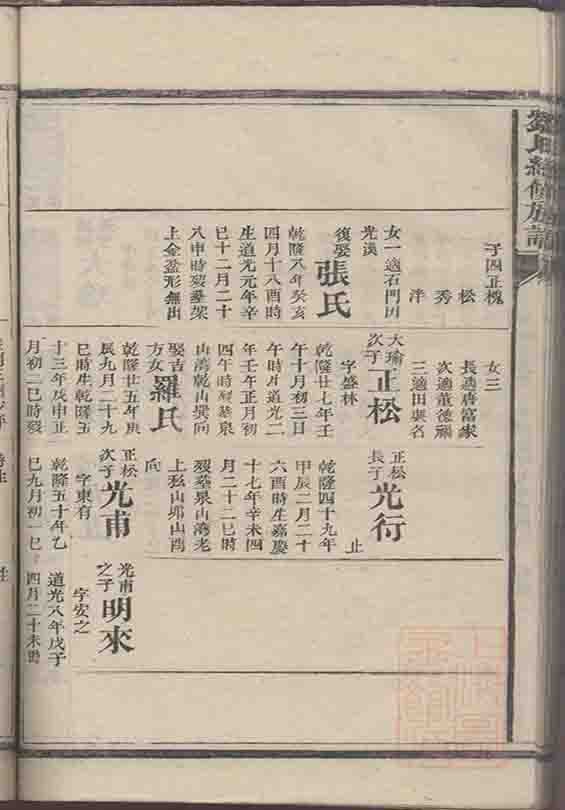 劉氏續修族譜
子四正槐
松
秀
泮
女一適石門田
光漢
復娶張氏
乾隆八年癸亥
四月十八酉時
生道光元年辛
巳十二月二十
八申時歿塟架
上金盆形無出
女三
長適唐富家
次適董德福
三適田興名
大瑜次子正松
字盛林
乾隆廿七年壬
午十月初三日
午時生道光二
年壬午正月初
四午時歿塟泉
山湾乾山巽向
娶吉方女羅氏
乾隆廿五年庚
辰九月二十九
巳時生乾隆五
十三年戊申正
月初二巳時歿
正松長子光行
止
乾隆四十九年
甲辰二月二十
六酉時生嘉慶
十七年辛未四
月二十二巳時
歿塟泉山湾老
上孤山邜山酉
向
正松次子光甫
字東有
乾隆五十年乙
巳九月初一巳
光甫之子明來
字安之
道光八年戊子
四月二十未時